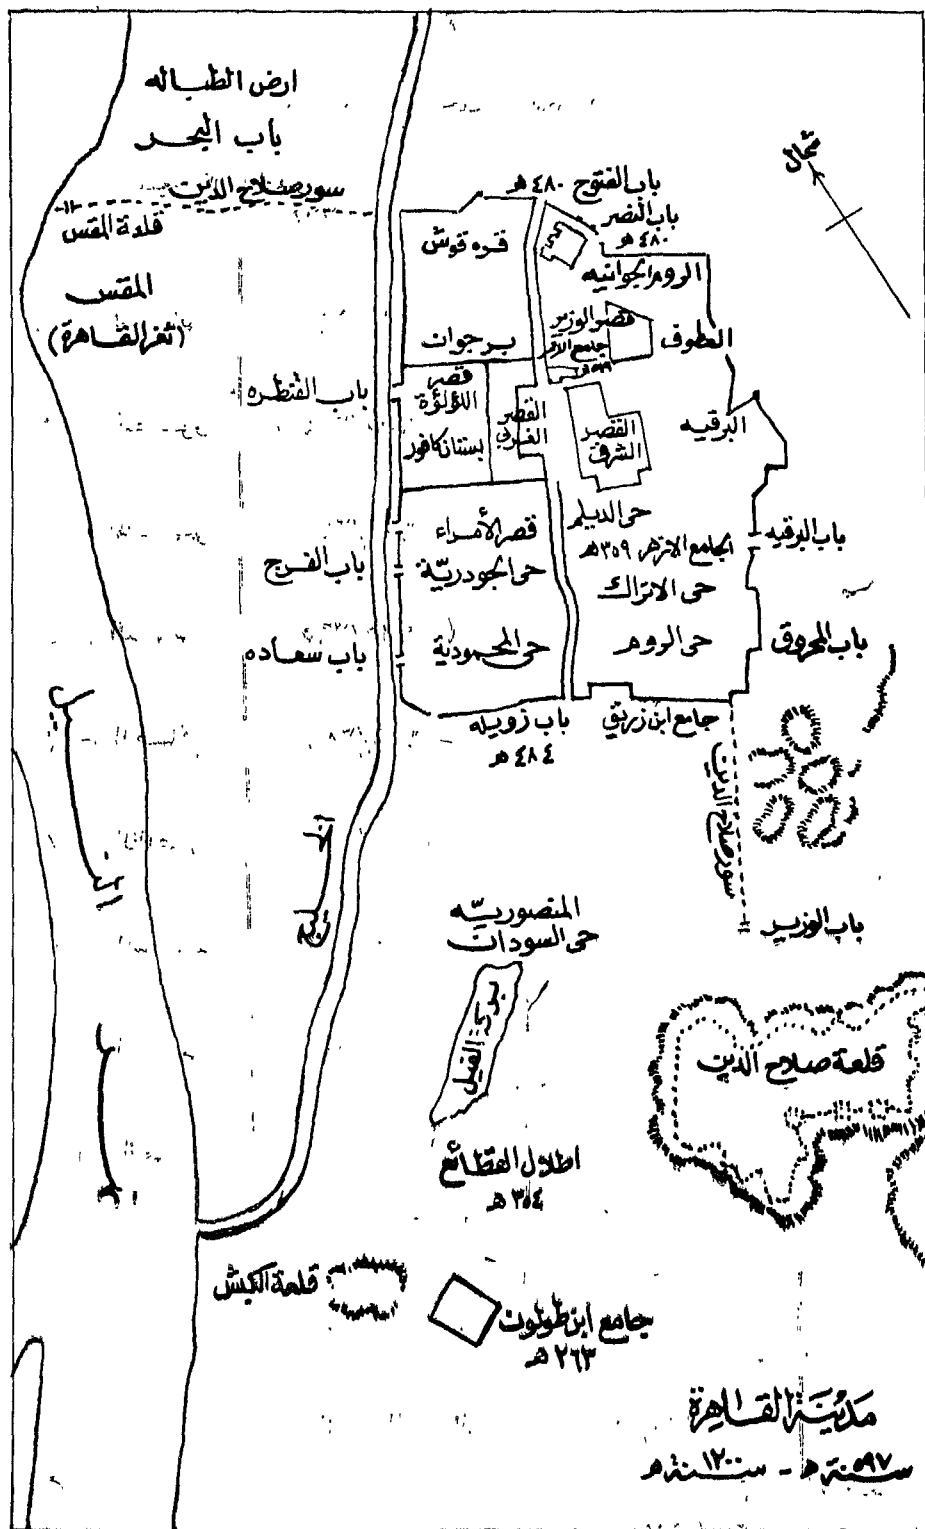 ارض الطباله
باب البحر
سور صلاح الدين
قلعة المقس
المقس
(ثغر القاهرة)
شمال
باب الفتوح ٤٨٠ هـ
باب النصر
٤٨٠ هـ
قره قوش
الروم الجوانيه
قصر الوزير
جامع الاقمر
العطوف
برجوان
باب القنطره
قصر
اللؤلؤة
القصر
الغربي
القصر
الشرقى
البرقيه
بستان كافور
حى الديلم
قصر الأمراء
الجامع الازهر ٣٥٩ هـ
باب البرقيه
باب الفرج
حى الجودريّة
حى الاتراك
باب سعاده
حى المحمودية
حى الروم
باب المحروق
باب زويله
٤٨٤ هـ
جامع ابن زريق
سور صلاح الدين
باب الوزير
النيل
الخليج
المنصوريّه
حى السودان
بركة الفيل
قلعة صلاح الدين
اطلال القطائع
٣٥٤ هـ
قلعة الكبش
جامع ابن طولون
٢٦٣ هـ
مدينة القاهرة
سنة ٥٩٧ هـ - سنة ١٢٠٠ م